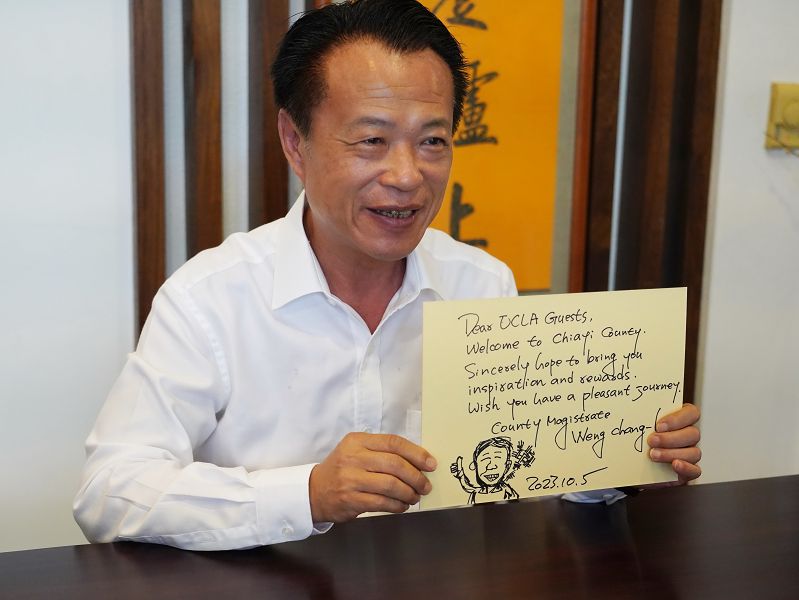 上
Dear UCLA Guests,
Welcome to Chiayi County.
Sincerely hope to bring you
inspiration and rewards.
Wish you have a pleasant journey.
County Magistrate
Weng Chang-l
2023.10.5